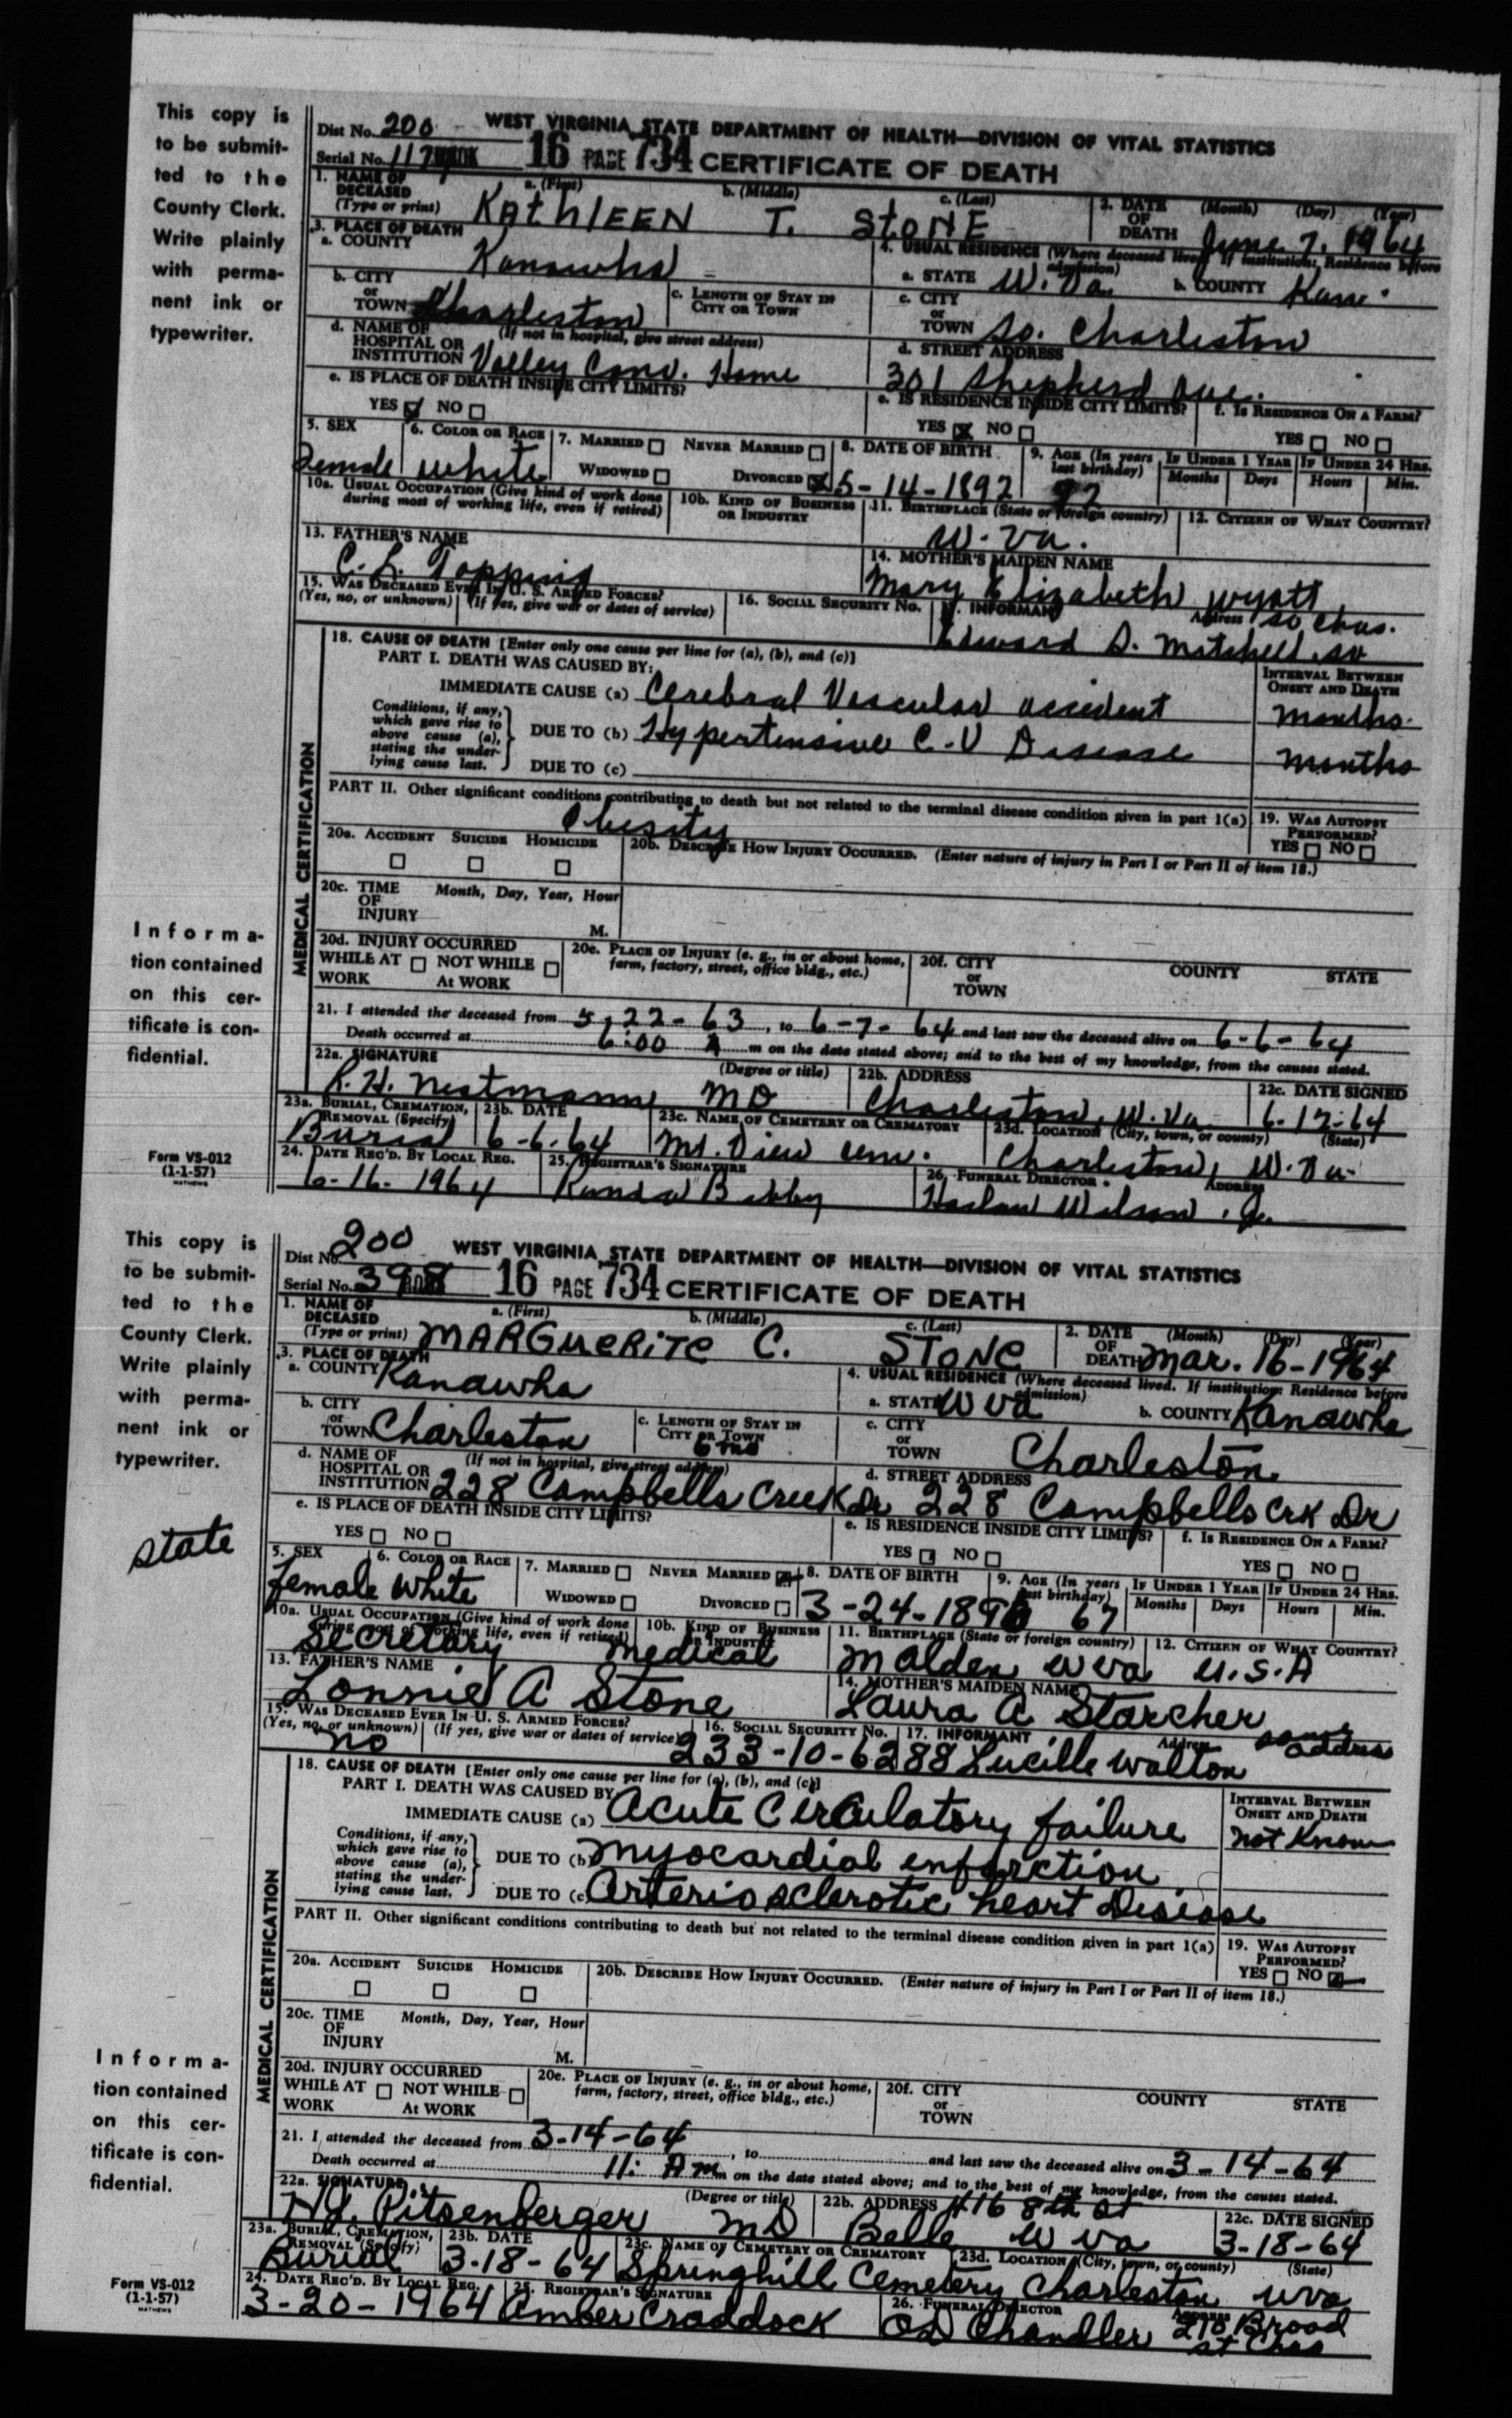 This copy is
to be submit-
ted to the
County Clerk.
Write plainly
with perma-
nent ink or
typewriter.
Informa-
tion contained
on this cer-
tificate is con-
fidential.
Form VS-012
(1-1-57)
MATHEWS
Dist No. 200 WEST VIRGINIA STATE DEPARTMENT OF HEALTH—DIVISION OF VITAL STATISTICS
Serial No. 16 PAGE 734 CERTIFICATE OF DEATH
1. NAME OF DECEASED (Type or print) a. (First) b. (Middle) c. (Last) KATHLEEN T. STONE
2. DATE OF DEATH (Month) (Day) (Year) June 7, 1964
3. PLACE OF DEATH a. COUNTY Kanawha
4. USUAL RESIDENCE (Where deceased lived. If institution: Residence before admission)
a. STATE W. Va. b. COUNTY Kan.
b. CITY or TOWN Charleston c. LENGTH OF STAY IN CITY OR TOWN
c. CITY or TOWN So. Charleston
d. NAME OF HOSPITAL OR INSTITUTION (If not in hospital, give street address) Valley Conv. Home
d. STREET ADDRESS 301 Shepherd Ave.
e. IS PLACE OF DEATH INSIDE CITY LIMITS? YES NO
e. IS RESIDENCE INSIDE CITY LIMITS? YES NO f. IS RESIDENCE ON A FARM? YES NO
5. SEX Female 6. COLOR OR RACE white 7. MARRIED NEVER MARRIED WIDOWED DIVORCED
8. DATE OF BIRTH 5-14-1892 9. AGE (In years last birthday) IF UNDER 1 YEAR Months Days IF UNDER 24 HRS. Hours Min.
10a. USUAL OCCUPATION (Give kind of work done during most of working life, even if retired) 10b. KIND OF BUSINESS OR INDUSTRY
11. BIRTHPLACE (State or foreign country) W. Va. 12. CITIZEN OF WHAT COUNTRY?
13. FATHER'S NAME C. L. Topping
14. MOTHER'S MAIDEN NAME Mary Elizabeth Wyatt
15. WAS DECEASED EVER IN U. S. ARMED FORCES? (Yes, no, or unknown) (If yes, give war or dates of service) 16. SOCIAL SECURITY NO.
17. INFORMANT Address So Chas. Edward D. Mitchell
18. CAUSE OF DEATH [Enter only one cause per line for (a), (b), and (c)]
PART I. DEATH WAS CAUSED BY: INTERVAL BETWEEN ONSET AND DEATH
IMMEDIATE CAUSE (a) Cerebral Vascular accident months
Conditions, if any, which gave rise to above cause (a), stating the underlying cause last.
DUE TO (b) Hypertensive C-V Disease months
DUE TO (c)
PART II. Other significant conditions contributing to death but not related to the terminal disease condition given in part 1(a) Obesity
19. WAS AUTOPSY PERFORMED? YES NO
20a. ACCIDENT SUICIDE HOMICIDE 20b. DESCRIBE HOW INJURY OCCURRED. (Enter nature of injury in Part I or Part II of item 18.)
20c. TIME OF INJURY Month, Day, Year, Hour M.
20d. INJURY OCCURRED WHILE AT WORK NOT WHILE AT WORK 20e. PLACE OF INJURY (e. g., in or about home, farm, factory, street, office bldg., etc.) 20f. CITY or TOWN COUNTY STATE
MEDICAL CERTIFICATION
21. I attended the deceased from 5-22-63, to 6-7-64 and last saw the deceased alive on 6-6-64
Death occurred at 6:00 A m on the date stated above; and to the best of my knowledge, from the causes stated.
22a. SIGNATURE (Degree or title) R. H. Nestmann MD 22b. ADDRESS Charleston, W. Va. 22c. DATE SIGNED
23a. BURIAL, CREMATION, REMOVAL (Specify) Burial 23b. DATE 6-6-64 23c. NAME OF CEMETERY OR CREMATORY Mt. View Cem. 23d. LOCATION (City, town, or county) (State) Charleston, W. Va.
24. DATE REC'D. BY LOCAL REG. 6-16-1964 25. REGISTRAR'S SIGNATURE 26. FUNERAL DIRECTOR ADDRESS Wilson
This copy is
to be submit-
ted to the
County Clerk.
Write plainly
with perma-
nent ink or
typewriter.
state
Informa-
tion contained
on this cer-
tificate is con-
fidential.
Form VS-012
(1-1-57)
MATHEWS
Dist No. 200 WEST VIRGINIA STATE DEPARTMENT OF HEALTH—DIVISION OF VITAL STATISTICS
Serial No. 16 PAGE 734 CERTIFICATE OF DEATH
1. NAME OF DECEASED (Type or print) a. (First) b. (Middle) c. (Last) MARGUERITE C. STONE
2. DATE OF DEATH (Month) (Day) (Year) Mar. 16-1964
3. PLACE OF DEATH a. COUNTY Kanawha
4. USUAL RESIDENCE (Where deceased lived. If institution: Residence before admission)
a. STATE W Va b. COUNTY Kanawha
b. CITY or TOWN Charleston c. LENGTH OF STAY IN CITY OR TOWN 6 mo
c. CITY or TOWN Charleston
d. NAME OF HOSPITAL OR INSTITUTION (If not in hospital, give street address) 228 Campbells Creek Dr
d. STREET ADDRESS 228 Campbells Crk Dr
e. IS PLACE OF DEATH INSIDE CITY LIMITS? YES NO
e. IS RESIDENCE INSIDE CITY LIMITS? YES NO f. IS RESIDENCE ON A FARM? YES NO
5. SEX female 6. COLOR OR RACE white 7. MARRIED NEVER MARRIED WIDOWED DIVORCED
8. DATE OF BIRTH 3-24-1896 9. AGE (In years last birthday) 67 IF UNDER 1 YEAR Months Days IF UNDER 24 HRS. Hours Min.
10a. USUAL OCCUPATION (Give kind of work done during most of working life, even if retired) Secretary 10b. KIND OF BUSINESS OR INDUSTRY medical
11. BIRTHPLACE (State or foreign country) Malden W Va 12. CITIZEN OF WHAT COUNTRY? U.S.A
13. FATHER'S NAME Lonnie A Stone
14. MOTHER'S MAIDEN NAME Laura A Starcher
15. WAS DECEASED EVER IN U. S. ARMED FORCES? (Yes, no, or unknown) (If yes, give war or dates of service) no 16. SOCIAL SECURITY NO. 233-10-6288
17. INFORMANT Address Lucille Walton same address
18. CAUSE OF DEATH [Enter only one cause per line for (a), (b), and (c)]
PART I. DEATH WAS CAUSED BY INTERVAL BETWEEN ONSET AND DEATH
IMMEDIATE CAUSE (a) Acute Circulatory failure not known
Conditions, if any, which gave rise to above cause (a), stating the underlying cause last.
DUE TO (b) myocardial enfarction
DUE TO (c) Arteriosclerotic heart Disease
PART II. Other significant conditions contributing to death but not related to the terminal disease condition given in part 1(a)
19. WAS AUTOPSY PERFORMED? YES NO
20a. ACCIDENT SUICIDE HOMICIDE 20b. DESCRIBE HOW INJURY OCCURRED. (Enter nature of injury in Part I or Part II of item 18.)
20c. TIME OF INJURY Month, Day, Year, Hour M.
20d. INJURY OCCURRED WHILE AT WORK NOT WHILE AT WORK 20e. PLACE OF INJURY (e. g., in or about home, farm, factory, street, office bldg., etc.) 20f. CITY or TOWN COUNTY STATE
MEDICAL CERTIFICATION
21. I attended the deceased from 3-14-64, to and last saw the deceased alive on 3-14-64
Death occurred at 11: Am m on the date stated above; and to the best of my knowledge, from the causes stated.
22a. SIGNATURE (Degree or title) Pitsenberger MD 22b. ADDRESS 416 8th St Belle W Va 22c. DATE SIGNED 3-18-64
23a. BURIAL, CREMATION, REMOVAL (Specify) Burial 23b. DATE 3-18-64 23c. NAME OF CEMETERY OR CREMATORY Springhill Cemetery 23d. LOCATION (City, town, or county) (State) Charleston W Va
24. DATE REC'D. BY LOCAL REG. 3-20-1964 25. REGISTRAR'S SIGNATURE Amber Craddock 26. FUNERAL DIRECTOR Chandler ADDRESS 210 Broad St Chas